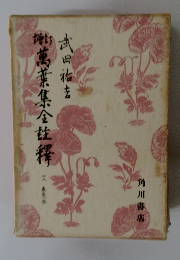 増訂
萬葉集全註釋
武田祐吉
角川書店